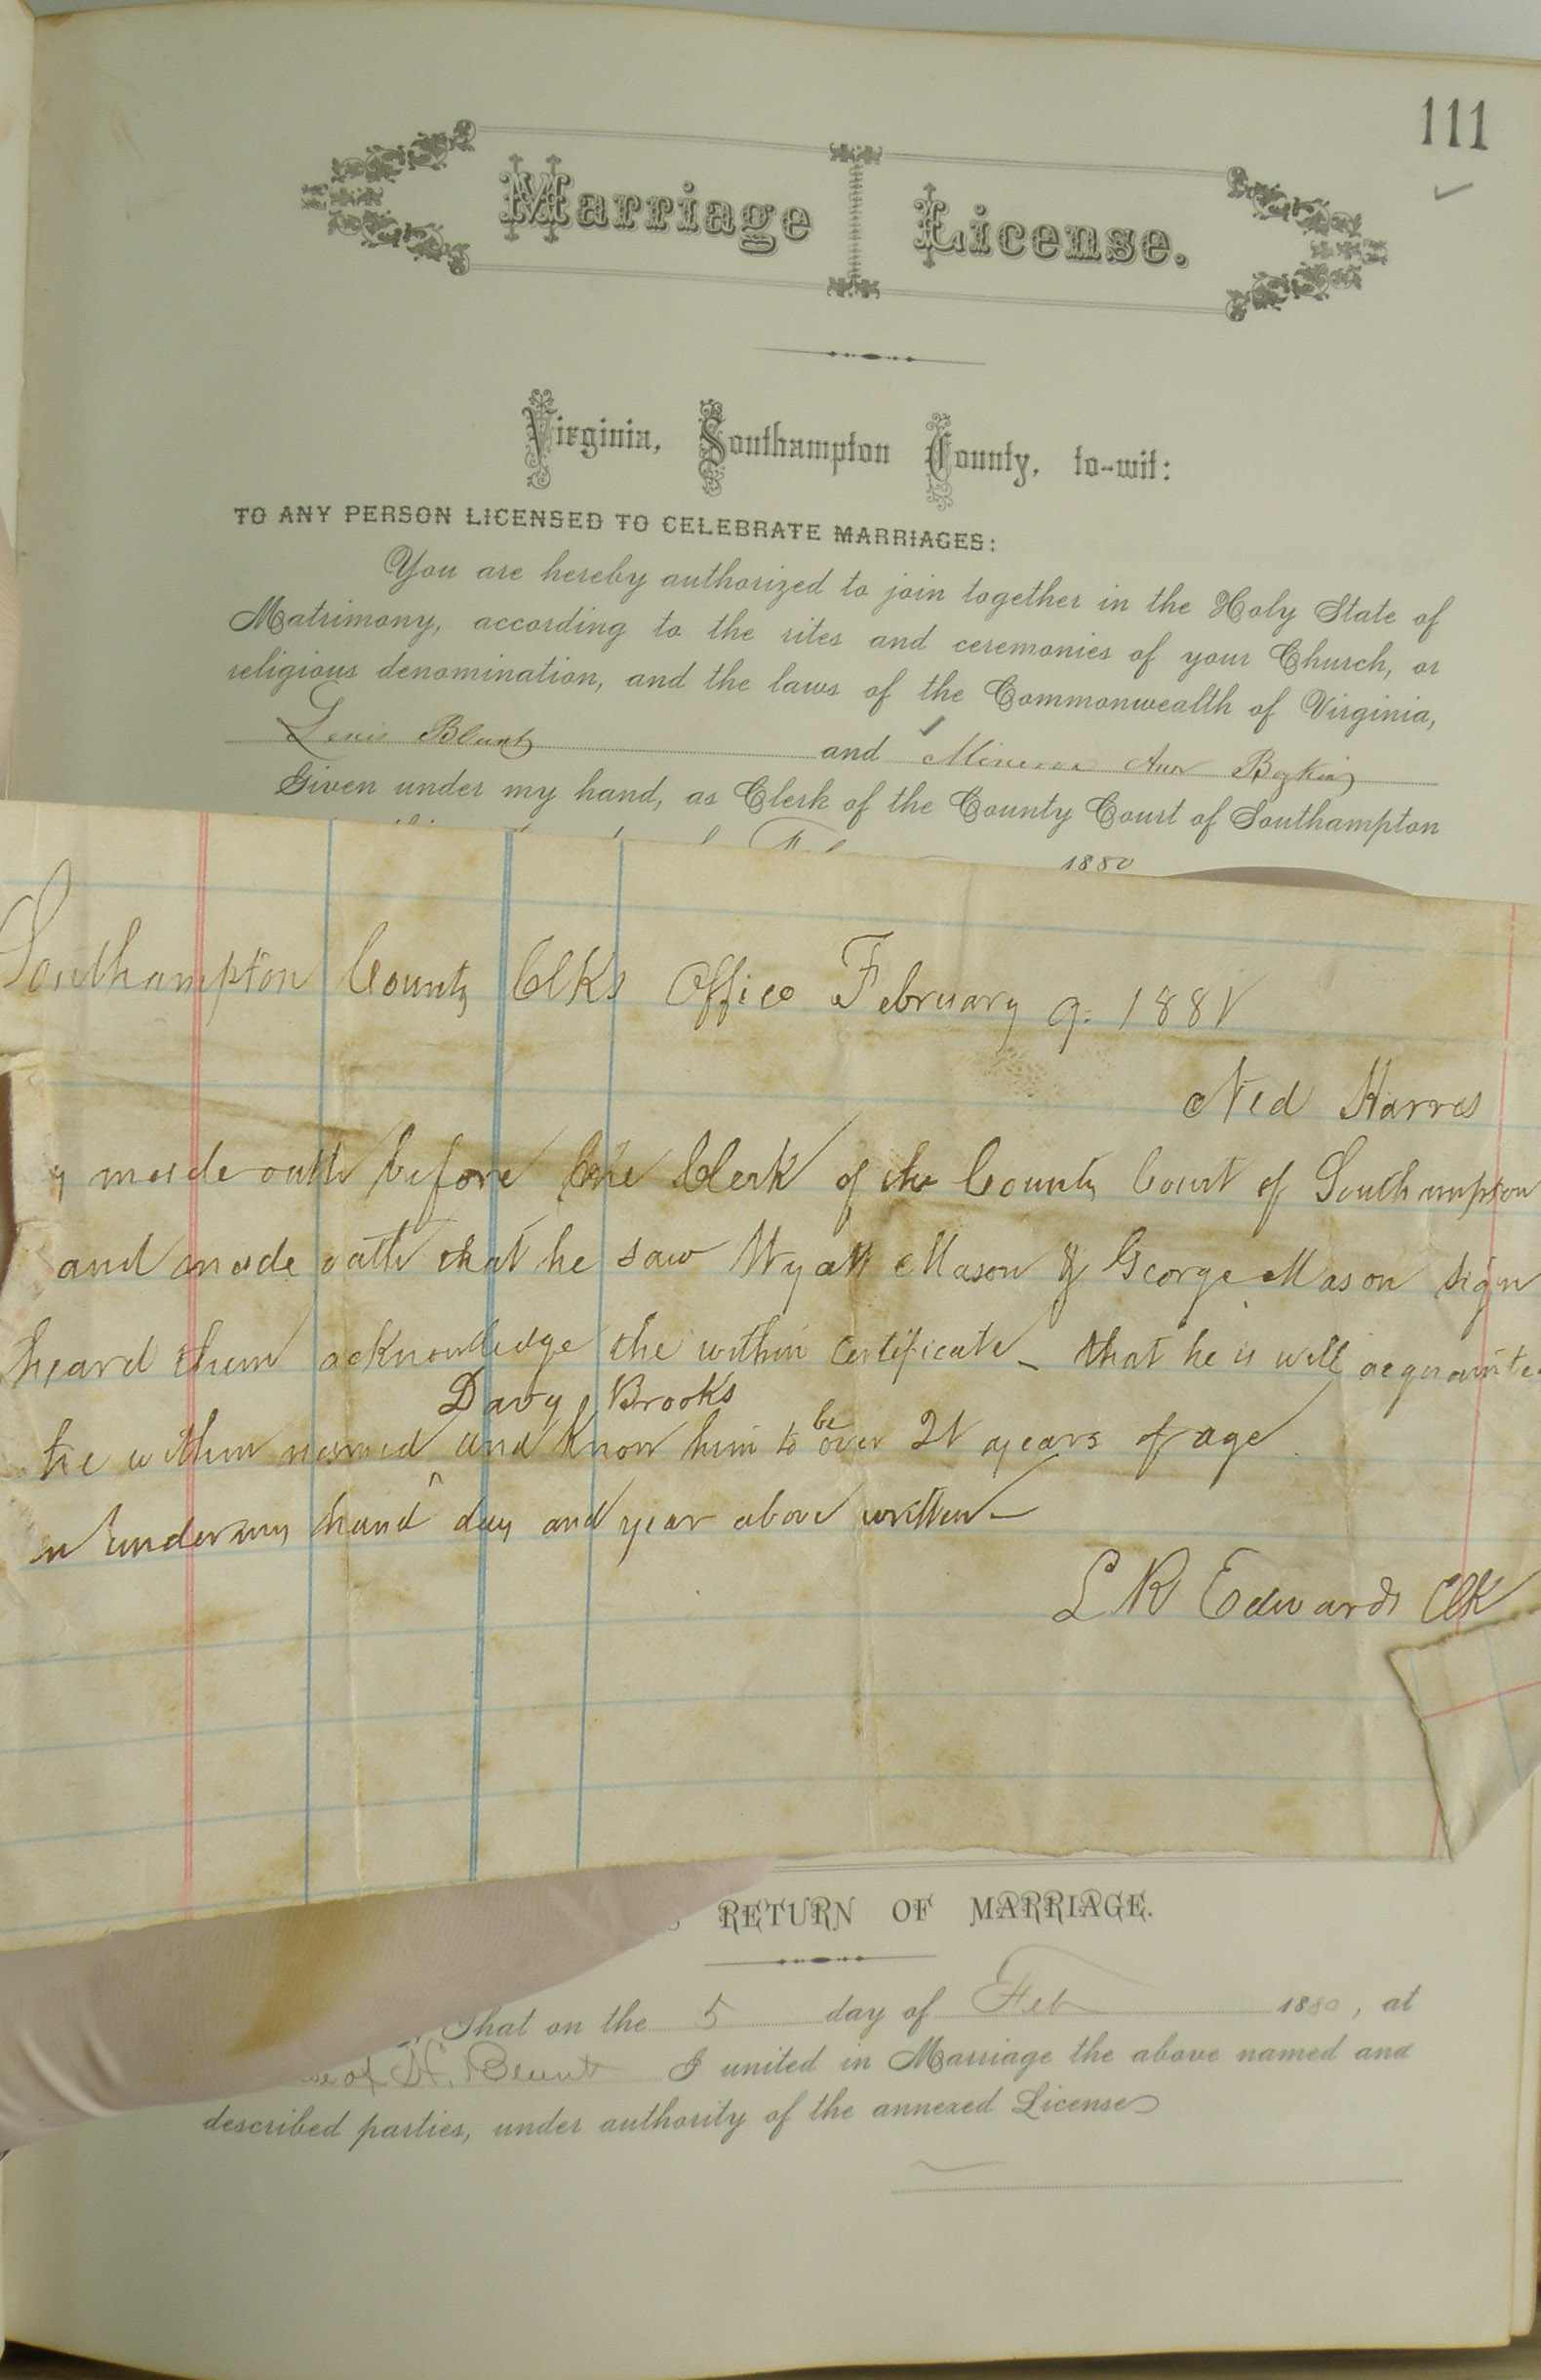 111
Marriage License.
Virginia, Southampton County, to-wit:
TO ANY PERSON LICENSED TO CELEBRATE MARRIAGES:
You are hereby authorized to join together in the Holy State of
Matrimony, according to the rites and ceremonies of your Church, or
religious denomination, and the laws of the Commonwealth of Virginia,
Lewis Blunt and Minerva Ann Boykin
Given under my hand, as Clerk of the County Court of Southampton
1880
Southampton County Clks Office February 9. 1881
Ned Harris
y made oath before the Clerk of the County Court of Southampton
and made oath that he saw Wyatt Mason & George Mason sign
heard them acknowledge the within certificate - that he is well acquainte
Davy Brooks
the within named and know him to be over 21 years of age
n under my hand day and year above written -
L R Edwards Clk
RETURN OF MARRIAGE.
That on the 5 day of Feb 1880, at
of H. Blunt I united in Marriage the above named and
described parties, under authority of the annexed License